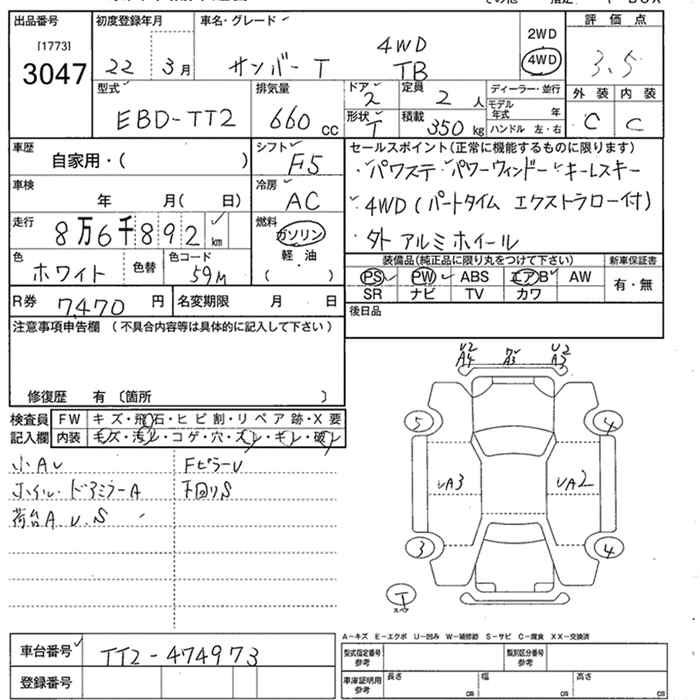 出品番号
[1773]
3047
初度登録年月
22 3月
車名・グレード
4WD
サンバー T TB
2WD
4WD
評価点
3.5
外装 内装
C C
型式
EBD-TT2
排気量
660 CC
ドア
2
形状
T
定員
2 人
積載
350 kg
ディーラー・並行
モデル年式 年
ハンドル 左・右
車歴
自家用・( )
シフト
F5
車検
年 月( 日)
冷房
AC
走行
8万6千892 km
燃料
ガソリン
軽油
( )
色
ホワイト
色替
色コード
59M
R券 7,470 円
名変期限 月 日
セールスポイント(正常に機能するものに限ります)
・パワステ ・パワーウィンドー・キーレスキー
・4WD(パートタイム エクストラロー付)
・外 アルミホイール
装備品(純正品に限り丸をつけて下さい)
新車保証書
PS PW ABS エアB AW
SR ナビ TV カワ
有・無
後日品
注意事項申告欄 (不具合内容等は具体的に記入して下さい)
修復歴 有(箇所 )
検査員記入欄
FW キズ・飛石・ヒビ割・リペア跡・X要
内装 キズ・汚レ・コゲ・穴・スレ・ギレ・破レ
小AU
ホイル・ドアミラーA
荷台A U.S
FピラーU
下回りS
U2
A4
A3
U2
A3
5
4
UA3
UA2
3
4
T
スペア
A−キズ E−エクボ U−凹み W−補修跡 S−サビ C−腐食 XX−交換済
車台番号
TT2-474973
登録番号
型式指定番号
参考
類別区分番号
参考
車庫証明用
参考
長さ cm
幅 cm
高さ cm